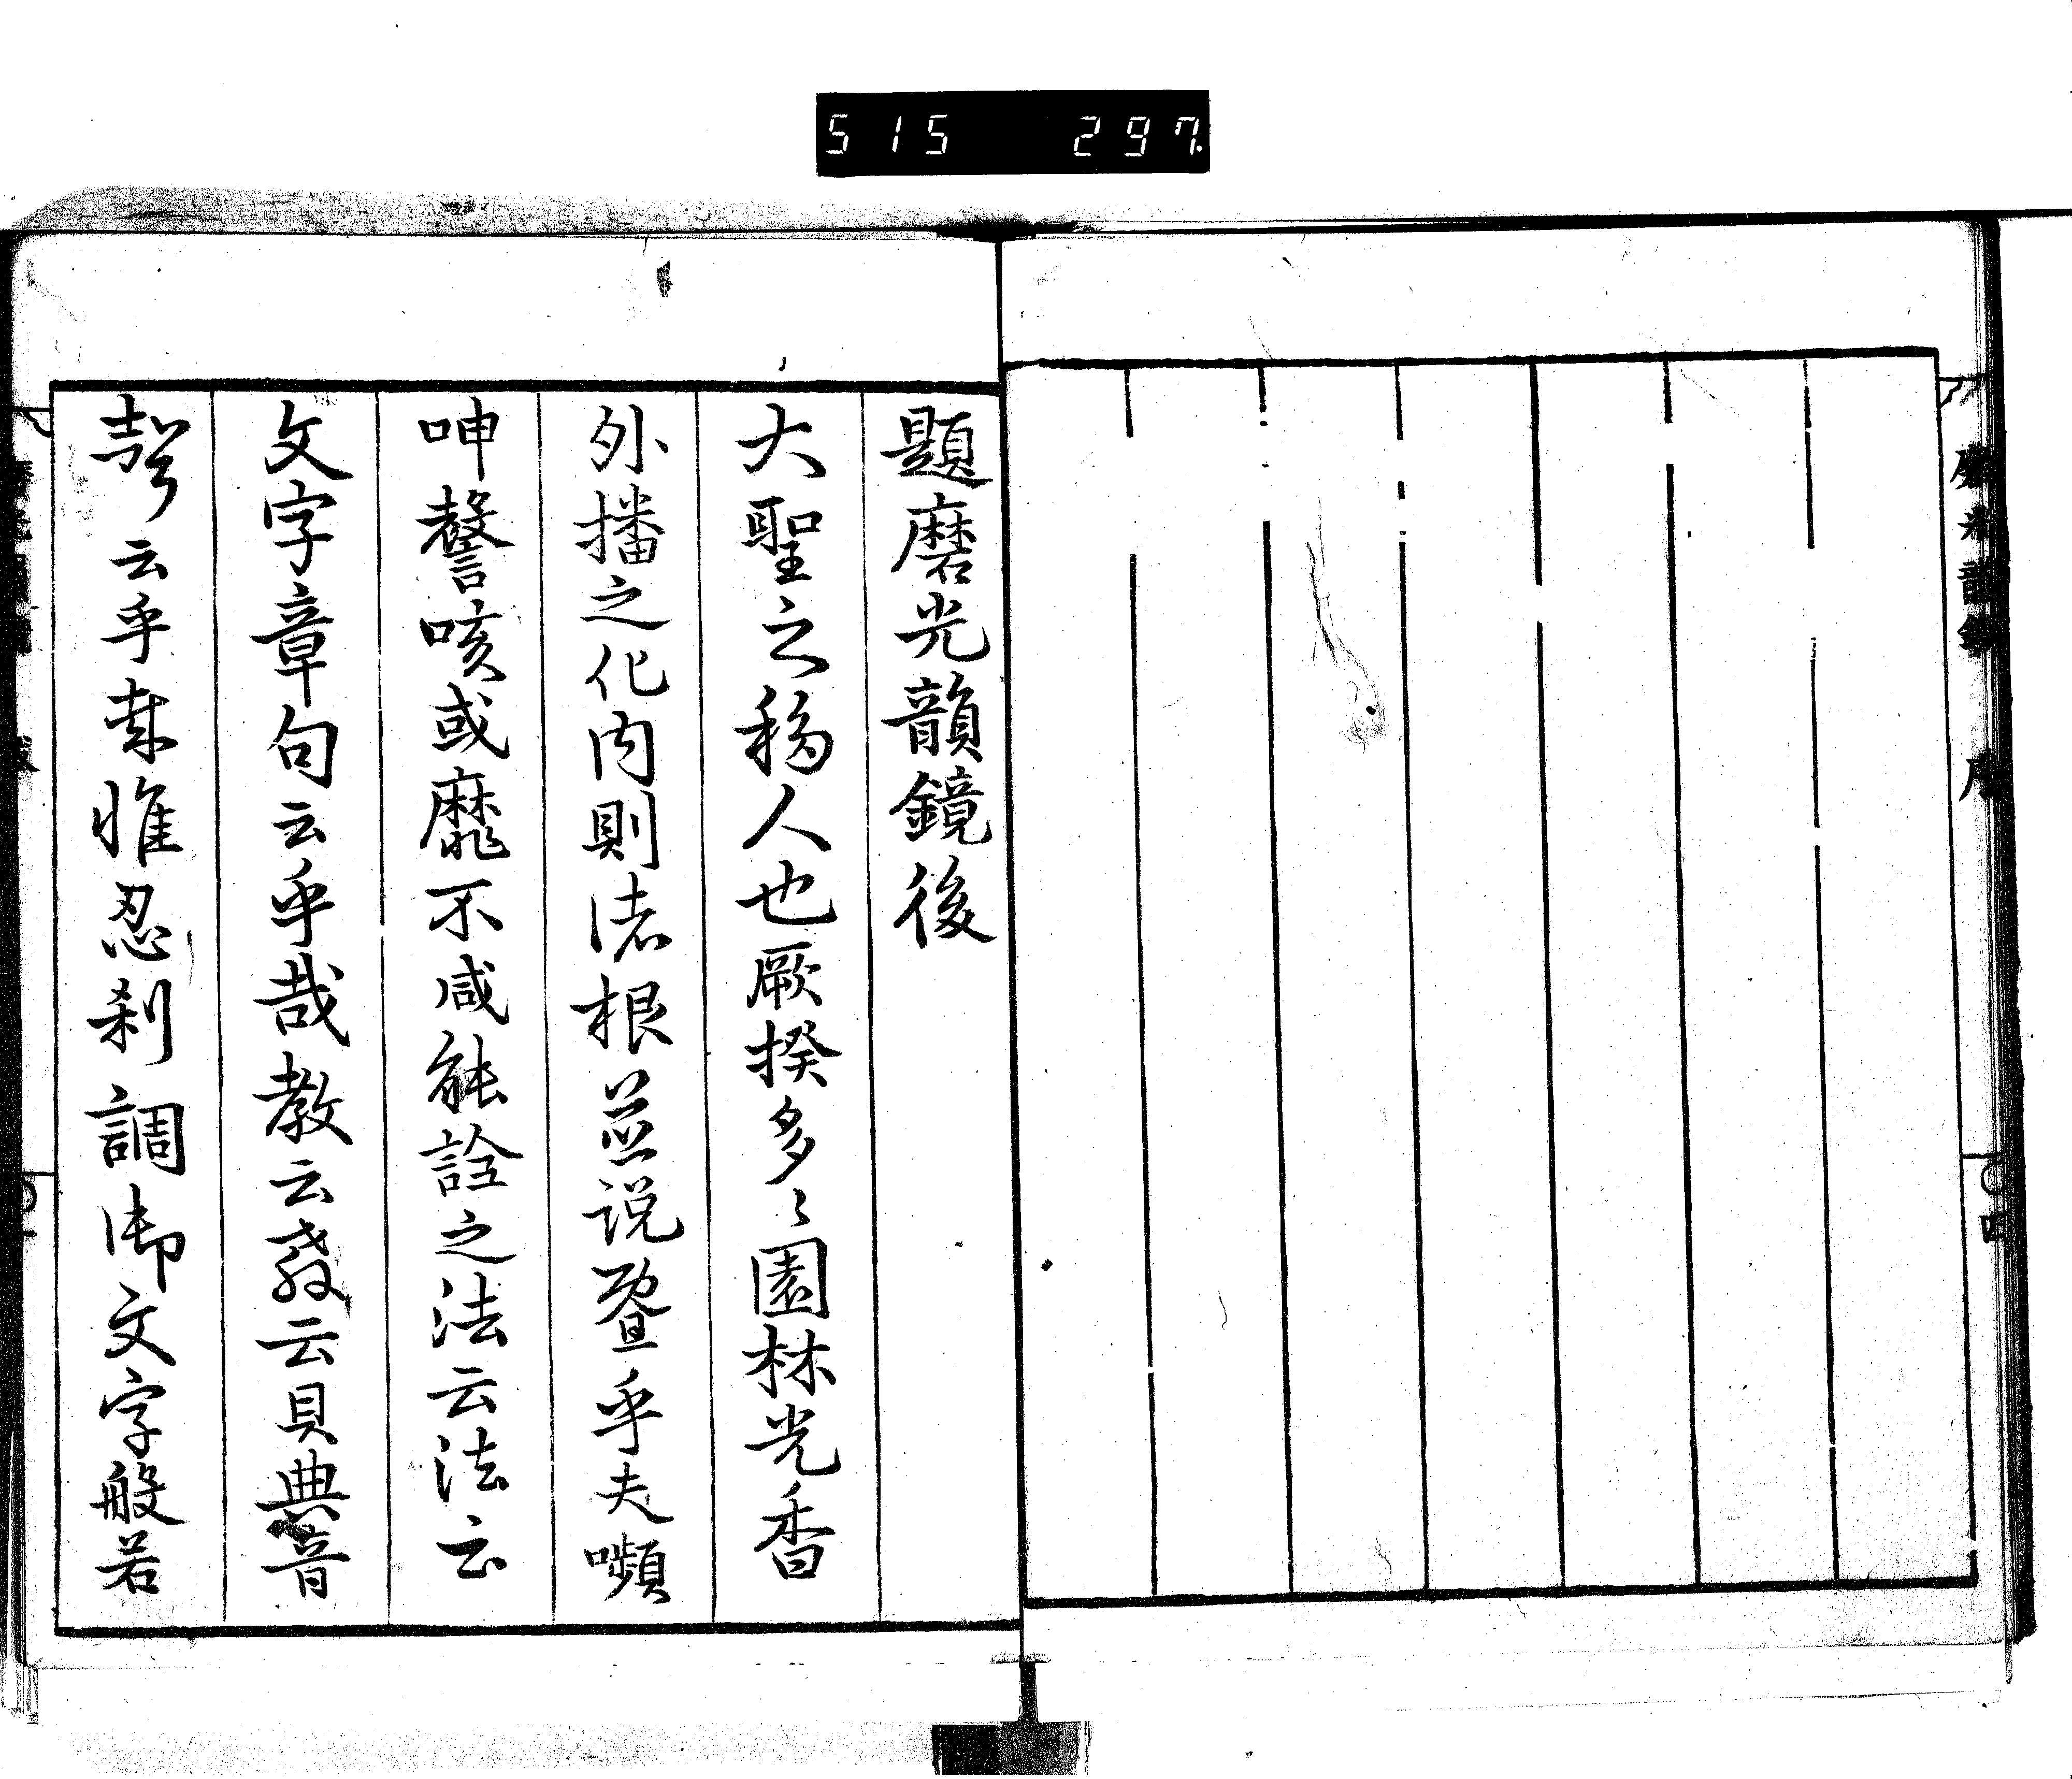 515 297
磨光韻鏡 序 四
題磨光韻鏡後
大聖之移人也厥揆多〻園林光香
外播之化内則諸根並説曁乎夫嚬
呻謦咳或靡不咸能詮之法云法云
文字章句云乎哉教云教云貝典音
聲云乎哉惟忍刹調御文字般若